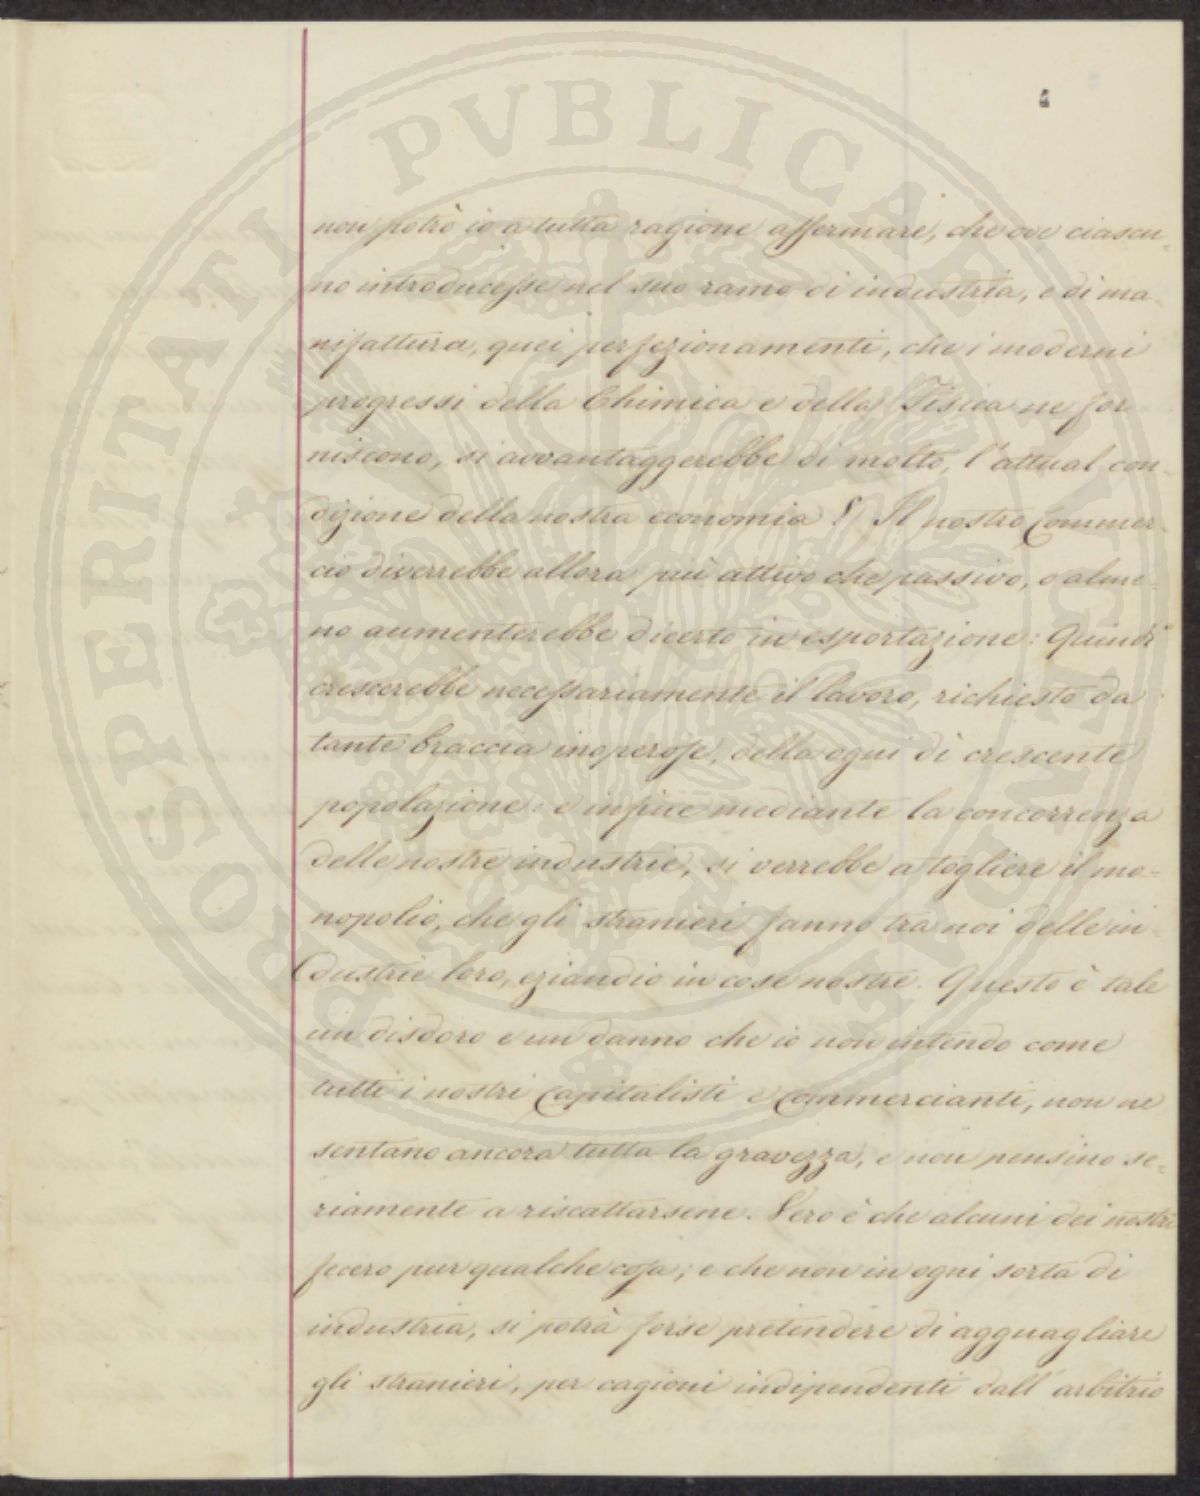 PROSPERITATI PUBLICAE
non potrò io a tutta ragione affermare, che ove ciascu-
no introducesse nel suo ramo di industria, e di ma-
nifattura, quei perfezionamenti, che i moderni
progressi della Chimica e della Fisica ne for-
niscono, si avvantaggerebbe di molto, l'attual con-
dizione della nostra economia? Il nostro Commer-
cio diverrebbe allora più attivo che passivo, o alme-
no aumenterebbe dicerto in esportazione: Quindi
crescerebbe necessariamente il lavoro, richiesto da
tante braccia inoperose, della ogni dì crescente
popolazione: e infine mediante la concorrenza
delle nostre industrie, si verrebbe a togliere il mo=
nopolio, che gli stranieri fanno tra noi delle in-
dustrie loro, eziandio in cose nostre. Questo è tale
un disdoro e un danno che io non intendo come
tutti i nostri Capitalisti e Commercianti, non ne
sentano ancora tutta la gravezza, e non pensino se=
riamente a riscattarsene. Vero è che alcuni dei nostri
fecero pur qualche cosa; e che non in ogni sorta di
industria, si potrà forse pretendere di agguagliare
gli stranieri, per cagioni indipendenti dall'arbitrio